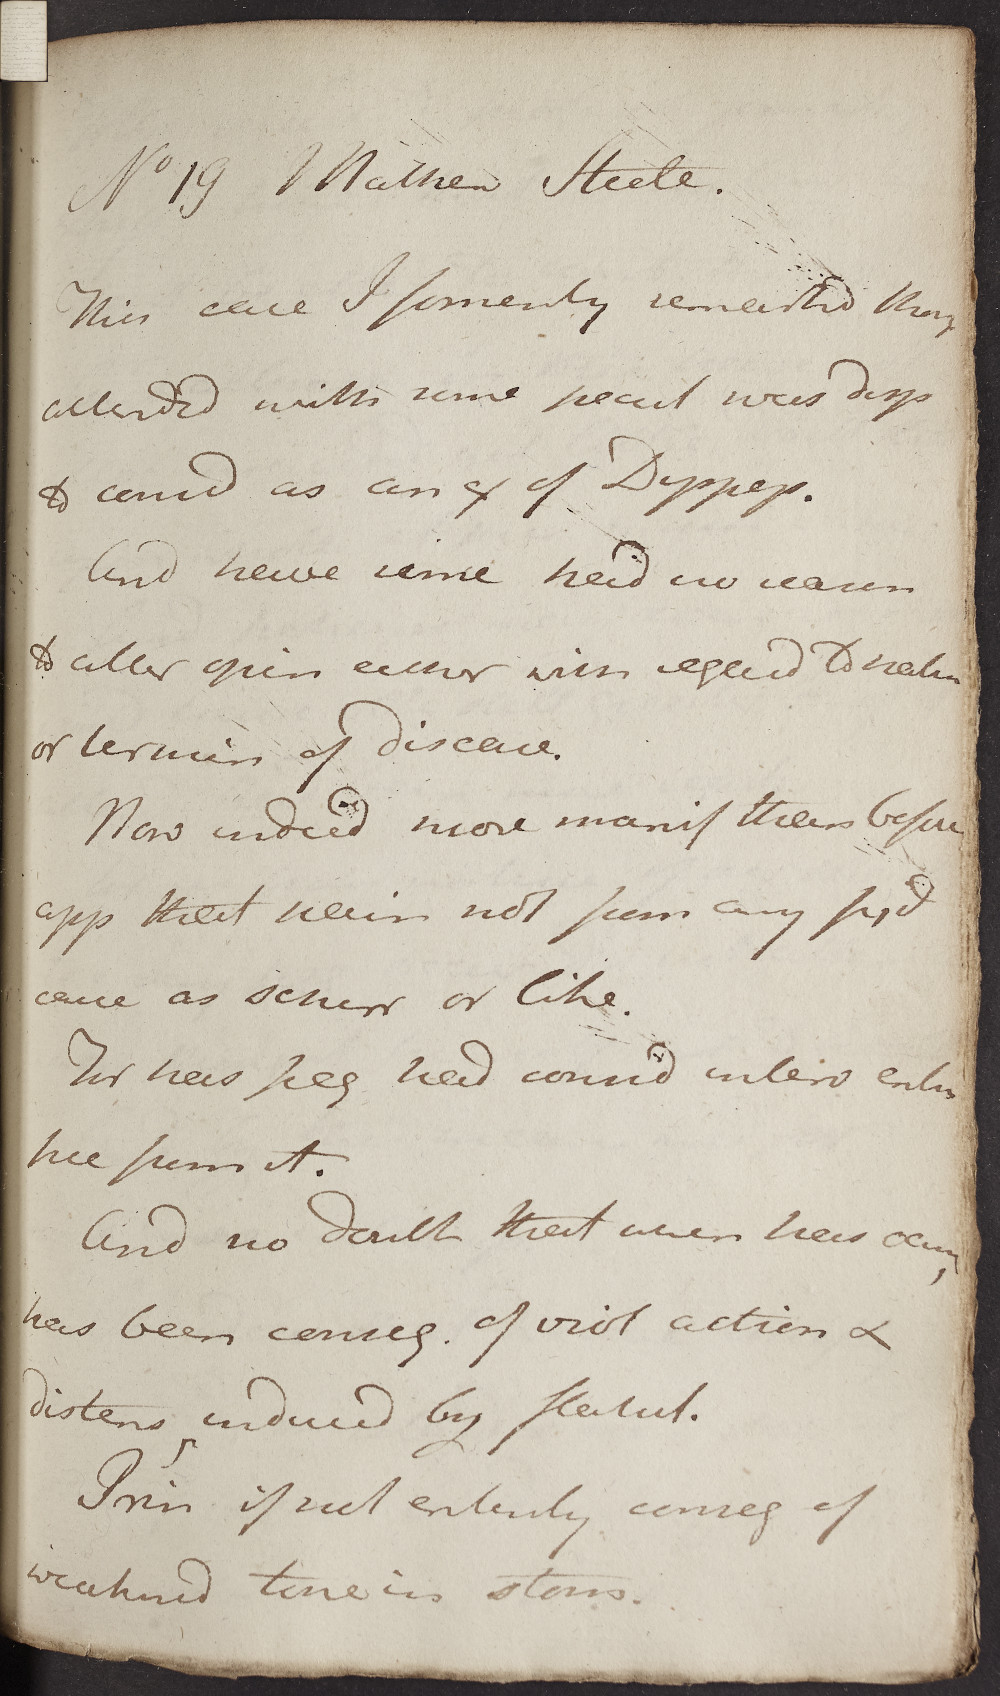 No 19 Mathew Steele.
This case I formerly remarked thoug
attended with some peculi was disp
to consid as an ex of Dyspeps.
And have since had no reason
to alter opin either with regard to natur
or termin of disease.
Now indeed more manif than before
app that pain not from any fixd
cause as schirr or like.
For has freq had considd interv entire
free from it.
And no doubt that when has occurr,
has been conseq. of viol action &
distens, induced by flatul.
Prin if not entirely conseq of
weakened tone in stom.